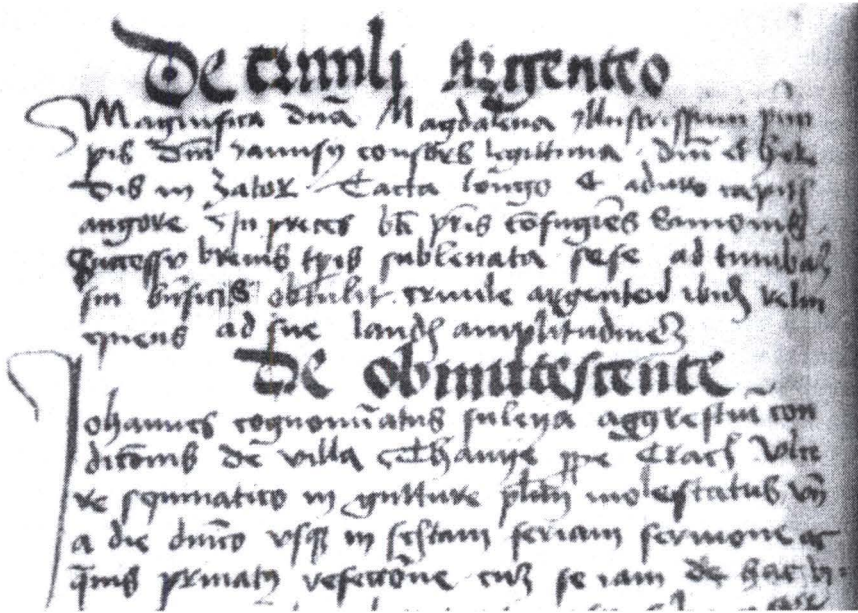 De crinili Argenteo
Magnifica dna Magdalena Illustrissimi prin
pis dni Janusij consors legittima dni et here
dis in Zator Tacta longo et aduro capitis
angore in preces bti pris cofugies
Successu breuis tpis subleuata sese ad tumbaz
sui bnficij obtulit crinile argenteu ibidz relin
quens ad sue laudis amplitudinez
De obmutescente
Johannes cognominatus suleya aggrestiu con
dicionis de villa prope Crach vlce
re squinatico in gutture molestatus vn
a die dnico vsqz in sextam feriam sermone ac
priuatus refectione cuz se iam de hac